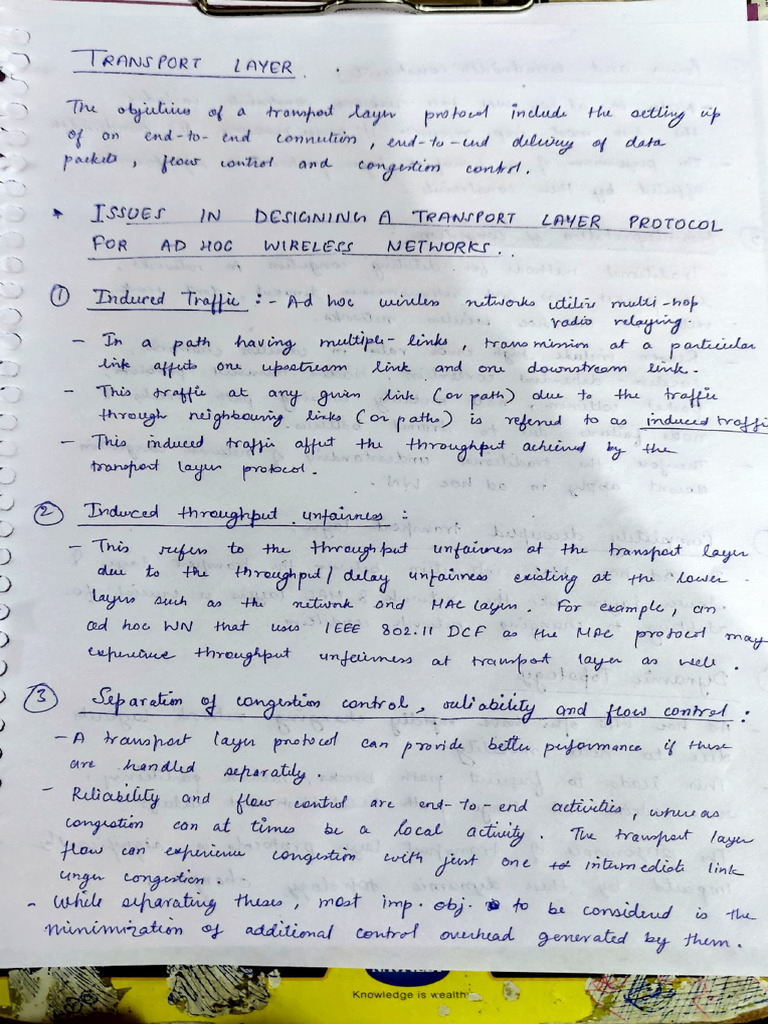 TRANSPORT LAYER.
The objectives of a transport layer protocol include the setting up
of an end-to-end connection, end-to-end delivery of data
packets, flow control and congestion control.
* ISSUES IN DESIGNING A TRANSPORT LAYER PROTOCOL
FOR AD HOC WIRELESS NETWORKS.
① Induced Traffic :- Ad hoc wireless networks utilize multi-hop
radio relaying.
- In a path having multiple-links, transmission at a particular
link affects one upstream link and one downstream link.
- This traffic at any given link (or path) due to the traffic
through neighbouring links (or paths) is referred to as induced traffic
- This induced traffic affect the throughput achieved by the
transport layer protocol.
② Induced throughput unfairness :
- This refers to the throughput unfairness at the transport layer
due to the throughput/delay unfairness existing at the lower
layers such as the network and MAC layers. For example, an
ad hoc WN that uses IEEE 802.11 DCF as the MAC protocol may
experience throughput unfairness at transport layer as well.
③ Separation of congestion control, reliability and flow control :
- A transport layer protocol can provide better performance if these
are handled separately.
- Reliability and flow control are end-to-end activities, whereas
congestion can at times be a local activity. The transport layer
flow can experience congestion with just one intermediate link
under congestion.
- While separating theses, most imp. obj. to be considered is the
minimization of additional control overhead generated by them.
Knowledge is wealth